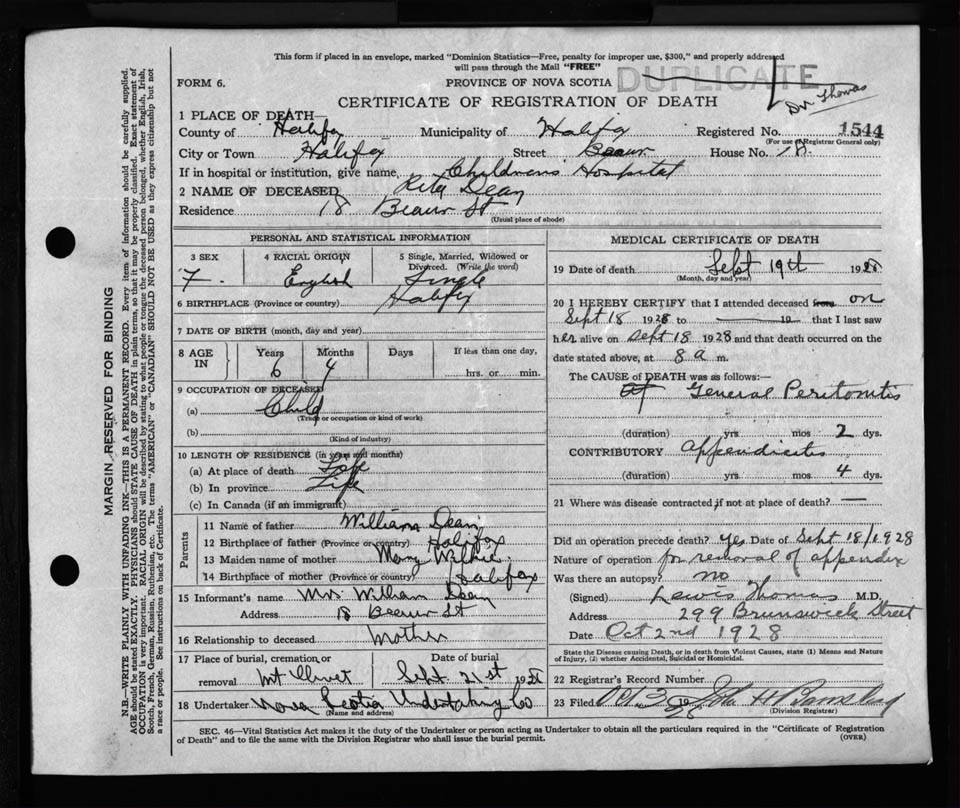 This form if placed in an envelope, marked "Dominion Statistics—Free, penalty for improper use, $300," and properly addressed
will pass through the Mail "FREE"
FORM 6.
PROVINCE OF NOVA SCOTIA
DUPLICATE
Dr Thomas
CERTIFICATE OF REGISTRATION OF DEATH
1 PLACE OF DEATH—
County of Halifax Municipality of Halifax Registered No. 1544
(For use of Registrar General only)
City or Town Halifax Street House No. 18
If in hospital or institution, give name, Childrens Hospital
2 NAME OF DECEASED Rita Dean
Residence 18 St
(Usual place of abode)
PERSONAL AND STATISTICAL INFORMATION
3 SEX 4 RACIAL ORIGIN 5 Single, Married, Widowed or Divorced. (Write the word)
F. English Single
6 BIRTHPLACE (Province or country) Halifax
7 DATE OF BIRTH (month, day and year)
8 AGE IN Years Months Days If less than one day,
6 4 hrs. or min.
9 OCCUPATION OF DECEASED
(a) Child
(Trade or occupation or kind of work)
(b)
(Kind of industry)
10 LENGTH OF RESIDENCE (in years and months)
(a) At place of death Life
(b) In province Life
(c) In Canada (if an immigrant)
Parents
11 Name of father William Dean
12 Birthplace of father (Province or country) Halifax
13 Maiden name of mother Mary
14 Birthplace of mother (Province or country) Halifax
15 Informant's name Mrs William Dean
Address 18 St
16 Relationship to deceased Mother
17 Place of burial, cremation, or removal Mt Olivet Date of burial Sept 21st 1928
18 Undertaker Nova Scotia Undertaking Co
(Name and address)
MEDICAL CERTIFICATE OF DEATH
19 Date of death Sept 19th 1928
(Month, day and year)
20 I HEREBY CERTIFY that I attended deceased from on
Sept 18 1928 to 19 that I last saw
her alive on Sept 18 1928 and that death occurred on the
date stated above, at 8 a m.
The CAUSE of DEATH was as follows:—
General Peritonitis
(duration) yrs mos 2 dys.
CONTRIBUTORY appendicitis
(duration) yrs mos 4 dys.
21 Where was disease contracted if not at place of death? —
Did an operation precede death? Yes Date of Sept 18/1928
Nature of operation for removal of appendix
Was there an autopsy? no
(Signed) Lewis Thomas M.D.
Address 299 Brunswick Street
Date Oct 2nd 1928
State the Disease causing Death, or in death from Violent Causes, state (1) Means and Nature
of Injury, (2) whether Accidental, Suicidal or Homicidal.
22 Registrar's Record Number
23 Filed Oct 3 28 John H
(Division Registrar)
SEC. 46—Vital Statistics Act makes it the duty of the Undertaker or person acting as Undertaker to obtain all the particulars required in the "Certificate of Registration
of Death" and to file the same with the Division Registrar who shall issue the burial permit.
(OVER)
MARGIN RESERVED FOR BINDING
N.B.—WRITE PLAINLY WITH UNFADING INK—THIS IS A PERMANENT RECORD. Every item of information should be carefully supplied.
AGE should be stated EXACTLY. PHYSICIANS should STATE CAUSE OF DEATH in plain terms, so that it may be properly classified. Exact statement of
OCCUPATION is very important. RACIAL ORIGIN will be described by stating to what people or tongue the deceased person belonged, whether English, Irish,
Scotch, French, German, Russian, Ruthenian, etc. The terms "AMERICAN" or "CANADIAN" SHOULD NOT BE USED as they express citizenship but not
a race or people. See instructions on back of Certificate.